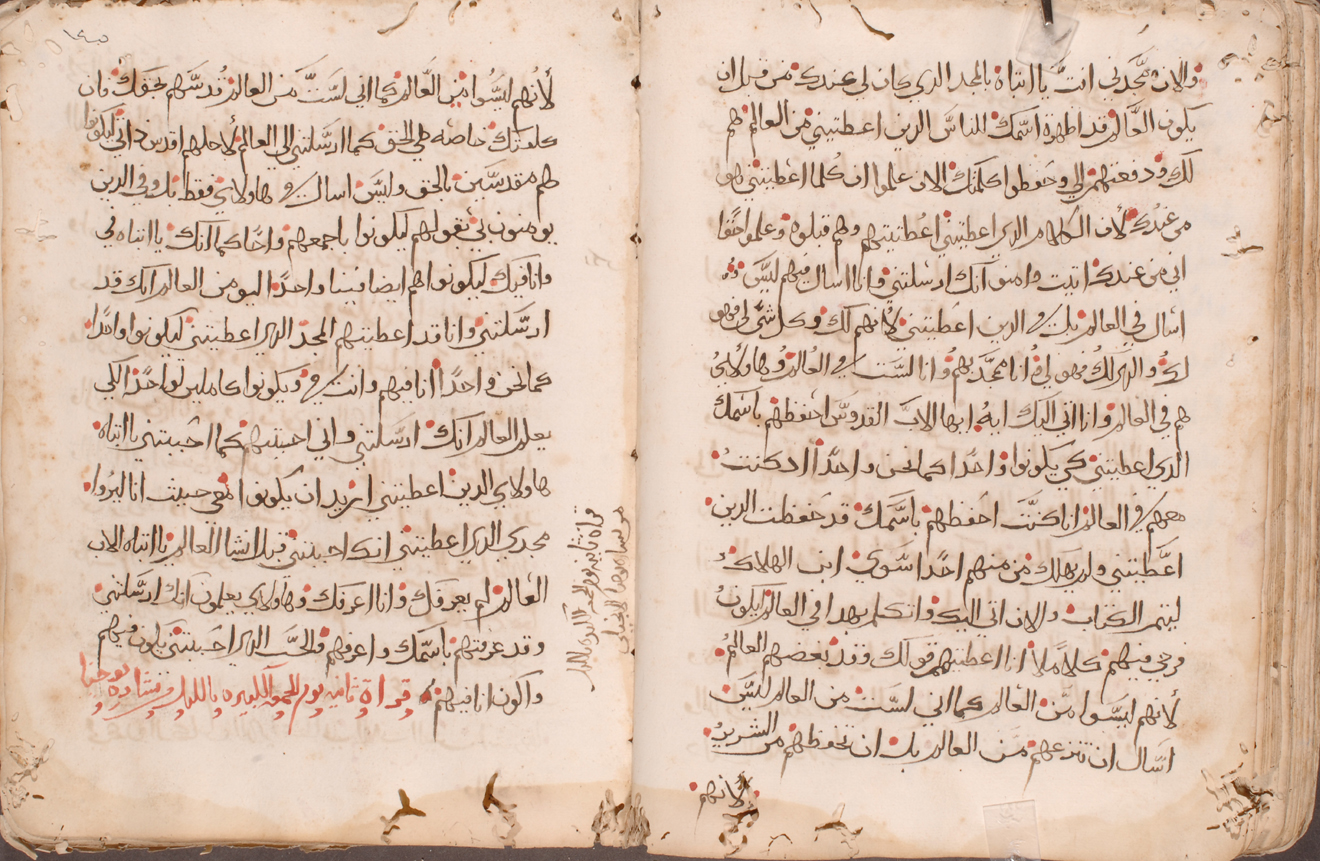 والان مجدني انت يا ابتاه بالمجد الدي كان لي عندك من قبل ان
يكون العالم قد اظهرة اسمك للناس الدين اعطيتني من العالم هم
لك ودفعتهم لي وحفظوا كلمتك الان علموا ان كلما اعطيتني هو
من عندك لان الكلام الدي اعطيتني اعطيتهم وهم قبلوه وعلموا حقا
اني من عندك اتيت وامنوا انك ارسلتني وانا اسال فيهم ليس
اسال في العالم بل في الدين اعطيتني لانهم لك وكل شي لي فهو
لك والدي لك فهو لي وانا ممجد بهم وانا لست في العالم وهاولاي
هم في العالم وانا اتي اليك ايها الاب القدوس احفظهم باسمك
الدي اعطيتني كي يكونوا واحدا كما نحن واحدا اد كنت
معهم في العالم انا كنت احفظهم باسمك قد حفظت الدين
اعطيتني ولم يهلك من منهم احدا سوي ابن الهلاك
ليتم الكتاب والان اتي اليك واتكلم بهدا في العالم ليكون
فرحي فيهم كلاملا انا اعطيتهم قولك وقد بغضهم العالم
لانهم ليسوا من العالم كما اني لست من العالم ليس
اسال ان تنزعهم من العالم بل ان تحفظهم من الشرير
لانهم
١٤٥
لانهم ليسوا من العالم كما اني لست من العالم قدسهم بحقك فان
كلمتك خاصه هي الحق كما ارسلتني الي العالم لاجلهم اقدس داتي ليكونوا
هم مقدسين بالحق وليس اسال في هاولاي فقط بل وفي الدين
يومنون بي بقولهم ليكونوا باجمعهم واحدا كما انك يا ابتاه في
وانا فيك ليكونوا هم ايضا فينا واحدا ليومن العالم انك قد
ارسلتني وانا قد اعطيتهم المجد الدي اعطيتني ليكونوا واحدا
كما نحن واحدا انا فيهم وانت في ويكونوا كاملين لواحد لكي
يعلم العالم انك ارسلتني واني احببتهم كما احببتني يا ابتاه
هاولاي الدين اعطيتني اريد ان يكونوا معي حيث انا ليروا
مجدي الدي اعطيتني انك احببتني قبل انشا العالم يا ابتاه الاب
العالم لم يعرفك وانا اعرفك وهاولاي يعلمون انك ارسلتني
وقد عرفتهم باسمك واعرفهم والحب الدي احببتني يكون فيهم
واكون انا فيهم قراة تانيه يوم الجمعه الكبيره بالليل من بشارة يوحنا